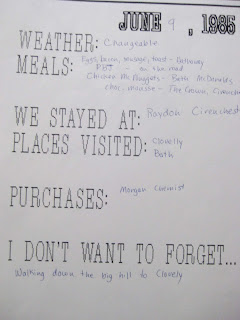 JUNE 9, 1985
WEATHER: Changeable
MEALS: Eggs, bacon, sausage, toast -
PB+J - on the road
Chicken McNuggets - Bath McDonalds
choc. mousse - The Crown,
WE STAYED AT: Raydon
PLACES VISITED: Clovelly
Bath
PURCHASES: Morgan Chemist
I DON'T WANT TO FORGET...
Walking down the big hill to Clovely